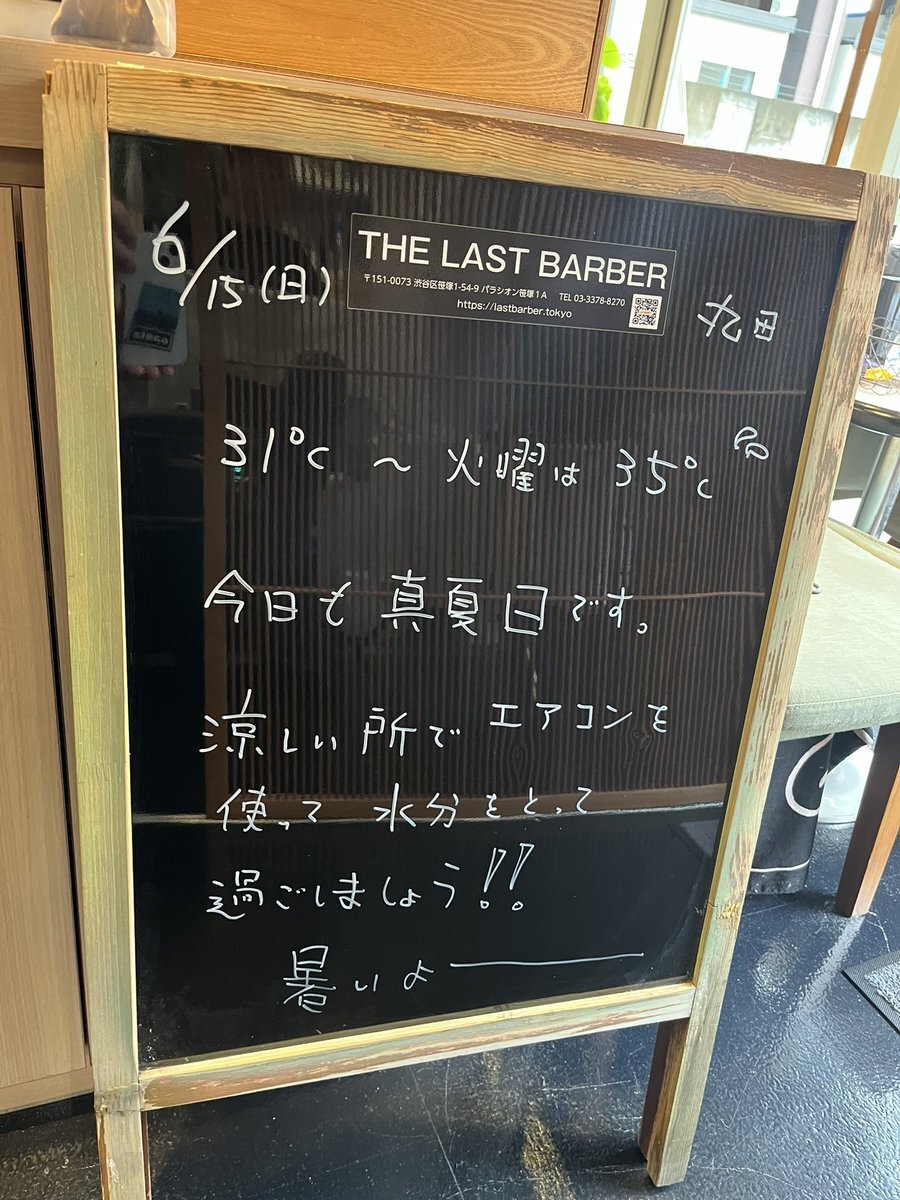 6/15(日)
THE LAST BARBER
〒151-0073 渋谷区笹塚1-54-9 パラシオン笹塚1A TEL 03-3378-8270
https://lastbarber.tokyo
丸田
31℃ 〜 火曜は 35℃
今日も真夏日です。
涼しい所で エアコンを
使って 水分をとって
過ごしましょう!!
暑いよ――